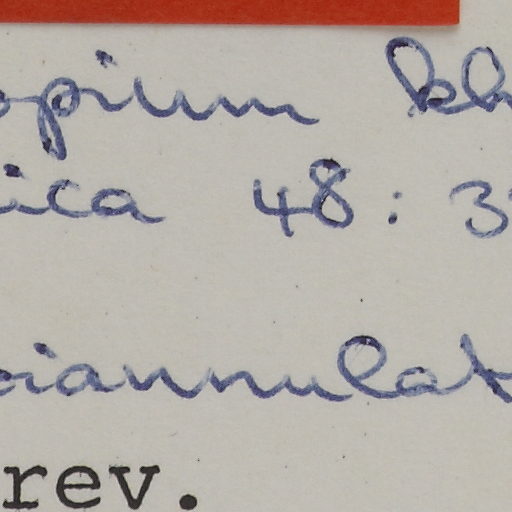 opium kh
ica 48: 3
iannulat
rev.